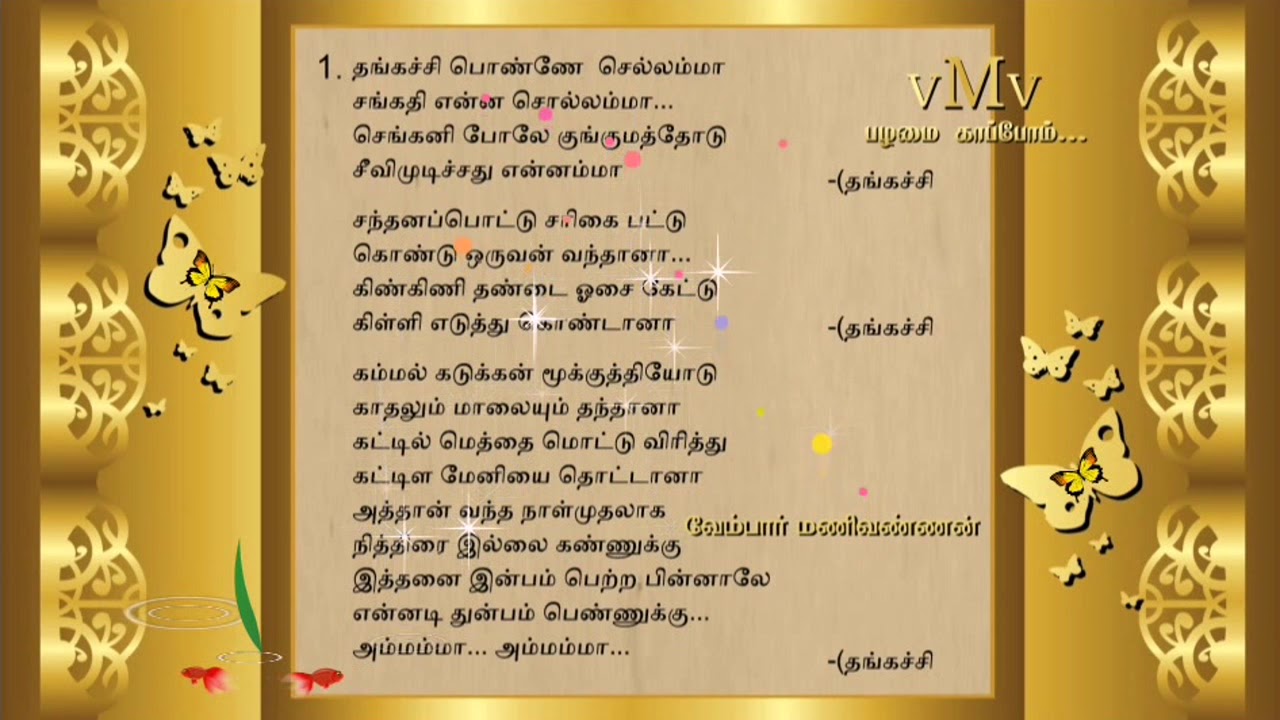 1. தங்கச்சி பொண்ணே செல்லம்மா
சங்கதி என்ன சொல்லம்மா...
செங்கனி போலே குங்குமத்தோடு
சீவிமுடிச்சது என்னம்மா
-(தங்கச்சி
சந்தனப்பொட்டு சரிகை பட்டு
கொண்டு ஒருவன் வந்தானா...
கிண்கிணி தண்டை ஓசை கேட்டு
கிள்ளி எடுத்து கொண்டானா
-(தங்கச்சி
கம்மல் கடுக்கன் மூக்குத்தியோடு
காதலும் மாலையும் தந்தானா
கட்டில் மெத்தை மொட்டு விரித்து
கட்டிள மேனியை தொட்டானா
அத்தான் வந்த நாள்முதலாக
நித்திரை இல்லை கண்ணுக்கு
இத்தனை இன்பம் பெற்ற பின்னாலே
என்னடி துன்பம் பெண்ணுக்கு...
அம்மம்மா... அம்மம்மா...
-(தங்கச்சி
vMv
பழமை காப்போம்...
வேம்பார் மணிவண்ணன்